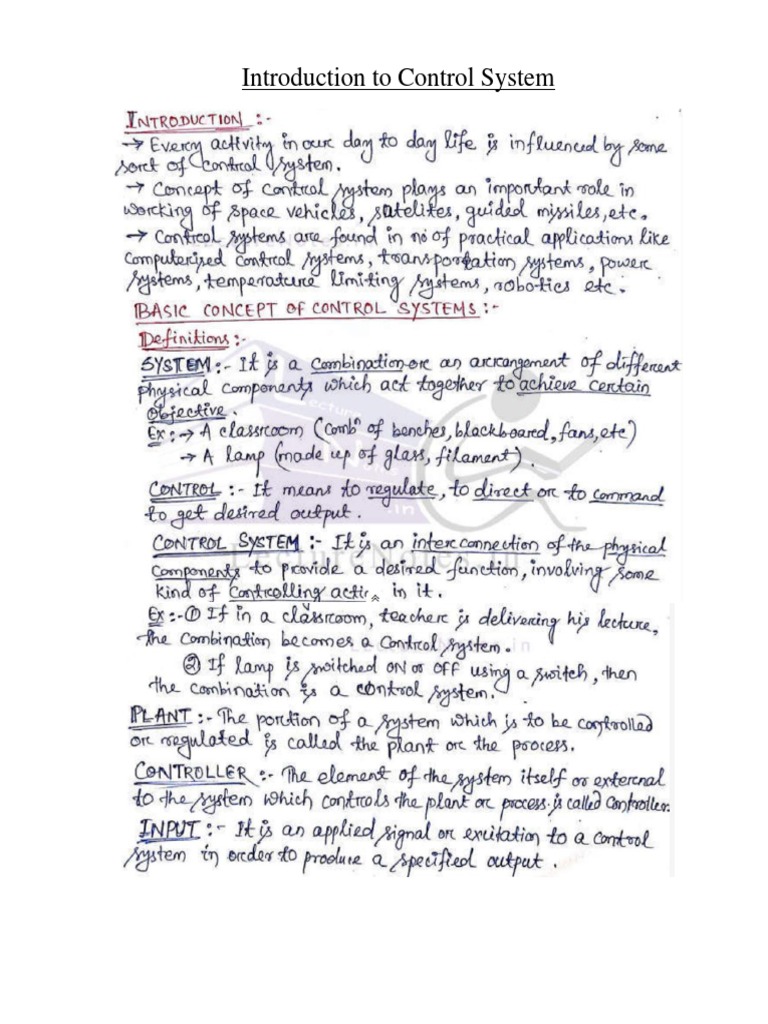 Introduction to Control System
INTRODUCTION :-
→ Every activity in our day to day life is influenced by some
sort of control system.
→ Concept of control system plays an important role in
working of space vehicles, satelites, guided missiles, etc.
→ Control systems are found in no of practical applications like
computerised control systems, transportation systems, power
systems, temperature limiting systems, robotics etc.
BASIC CONCEPT OF CONTROL SYSTEMS :-
Definitions :-
SYSTEM :- It is a combination or an arrangement of different
physical components which act together to achieve certain
objective.
Ex :- → A classroom (combⁿ of benches, blackboard, fans, etc)
→ A lamp (made up of glass, filament).
CONTROL :- It means to regulate, to direct or to command
to get desired output.
CONTROL SYSTEM :- It is an interconnection of the physical
components to provide a desired function, involving some
kind of controlling acti in it.
Ex :- ① If in a classroom, teacher is delivering his lecture,
the combination becomes a control system.
② If lamp is switched ON or OFF using a switch, then
the combination is a control system.
PLANT :- The portion of a system which is to be controlled
or regulated is called the plant or the process.
CONTROLLER :- The element of the system itself or external
to the system which controls the plant or process is called controller.
INPUT :- It is an applied signal or excitation to a control
system in order to produce a specified output.